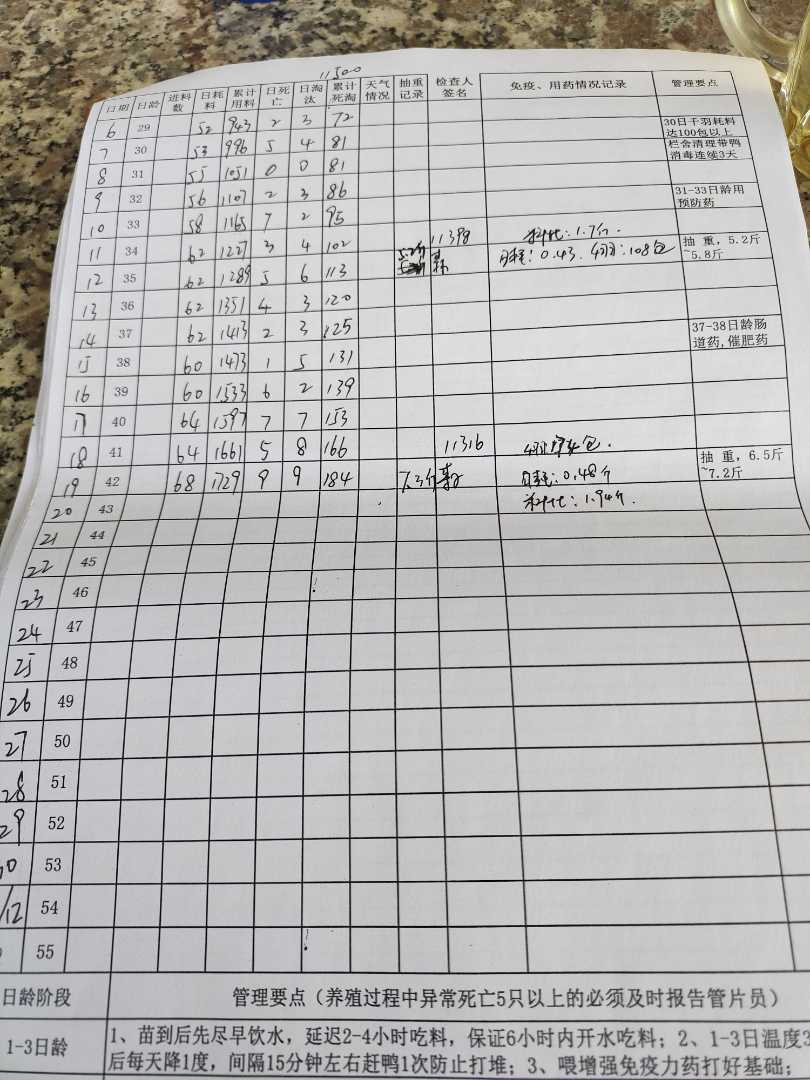 11500
日期 日龄 进料数 日耗料 累计用料 日死亡 日淘汰 累计死淘 天气情况 抽重记录 检查人签名 免疫、用药情况记录 管理要点
6 29 52 943 2 3 72
7 30 53 996 5 4 81 30日千羽耗料达100包以上
8 31 55 1051 0 0 81 栏舍清理带鸭消毒连续3天
9 32 56 1107 2 3 86
10 33 58 1165 7 2 95 31-33日龄用预防药
11 34 62 1227 3 4 102 5.2斤 11398 料比:1.7斤.
12 35 62 1289 5 6 113 日耗:0.43. 108包 抽重,5.2斤~5.8斤
13 36 62 1351 4 3 120
14 37 62 1413 2 3 125
15 38 60 1473 1 5 131 37-38日龄肠道药,催肥药
16 39 60 1533 6 2 139
17 40 64 1597 7 7 153
18 41 64 1661 5 8 166 11316 包.
19 42 68 1729 9 9 184 7.3斤 日耗:0.48斤 抽重,6.5斤~7.2斤
20 43 料比:1.94斤.
21 44
22 45
23 46
24 47
25 48
26 49
27 50
28 51
29 52
30 53
/12 54
55
日龄阶段 管理要点(养殖过程中异常死亡5只以上的必须及时报告管片员)
1-3日龄 1、苗到后先尽早饮水,延迟2-4小时吃料,保证6小时内开水吃料;2、1-3日温度3
后每天降1度,间隔15分钟左右赶鸭1次防止打堆;3、喂增强免疫力药打好基础;